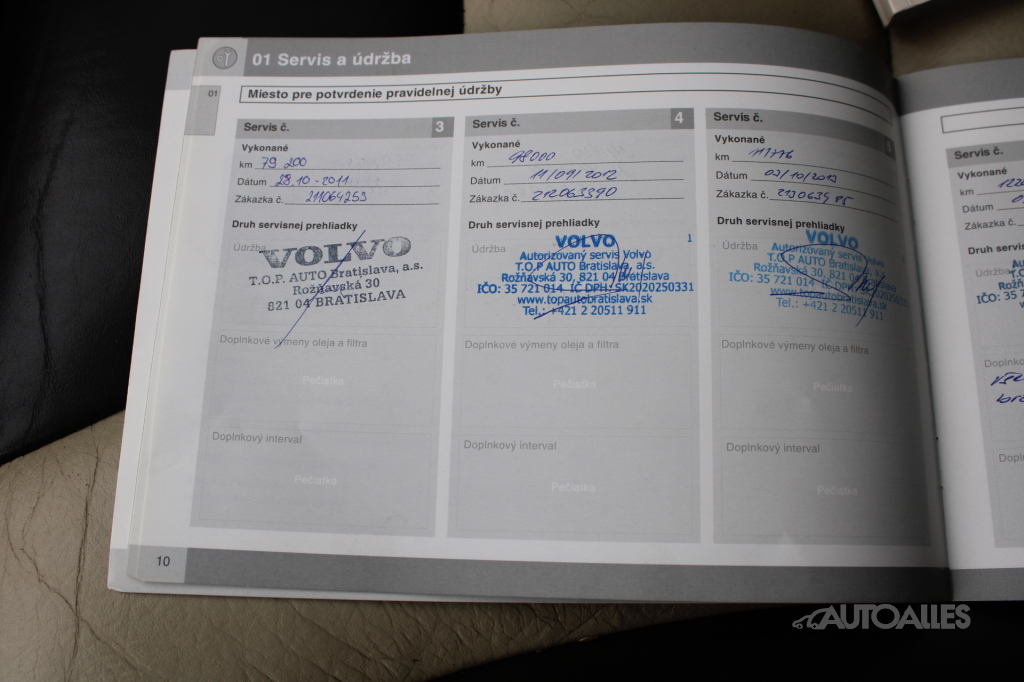 01 Servis a údržba
01
Miesto pre potvrdenie pravidelnej údržby
Servis č. 3
Vykonané
km 79 200
Dátum 28.10-2011
Zákazka č. 211064259
Druh servisnej prehliadky
Údržba
VOLVO
T.O.P. AUTO Bratislava, a.s.
Rožňavská 30
821 04 BRATISLAVA
Doplnkové výmeny oleja a filtra
Pečiatka
Doplnkový interval
Pečiatka
Servis č. 4
Vykonané
km 98000
Dátum 11/09/2012
Zákazka č. 212063390
Druh servisnej prehliadky
Údržba
VOLVO 1
Autorizovaný servis Volvo
T.O.P AUTO Bratislava, a.s.
Rožňavská 30, 821 04 Bratislava
IČO: 35 721 014 IČ DPH: SK2020250331
www.topautobratislava.sk
Tel.: +421 2 20511 911
Doplnkové výmeny oleja a filtra
Pečiatka
Doplnkový interval
Pečiatka
Servis č. 5
Vykonané
km 111776
Dátum 03/10/2013
Zákazka č.
Druh servisnej prehliadky
Údržba
VOLVO
Autorizovaný servis Volvo
T.O.P AUTO Bratislava, a.s.
Rožňavská 30, 821 04 Bratislava
IČO: 35 721 014 IČ DPH: SK2020250331
www.topautobratislava.sk
Tel.: +421 2 20511 911
Doplnkové výmeny oleja a filtra
Pečiatka
Doplnkový interval
Pečiatka
Servis č.
Vykonané
km
Dátum
Zákazka č.
Druh servis
Údržba
IČO: 35
Doplnkov
Dopln
10
AUTOALLES